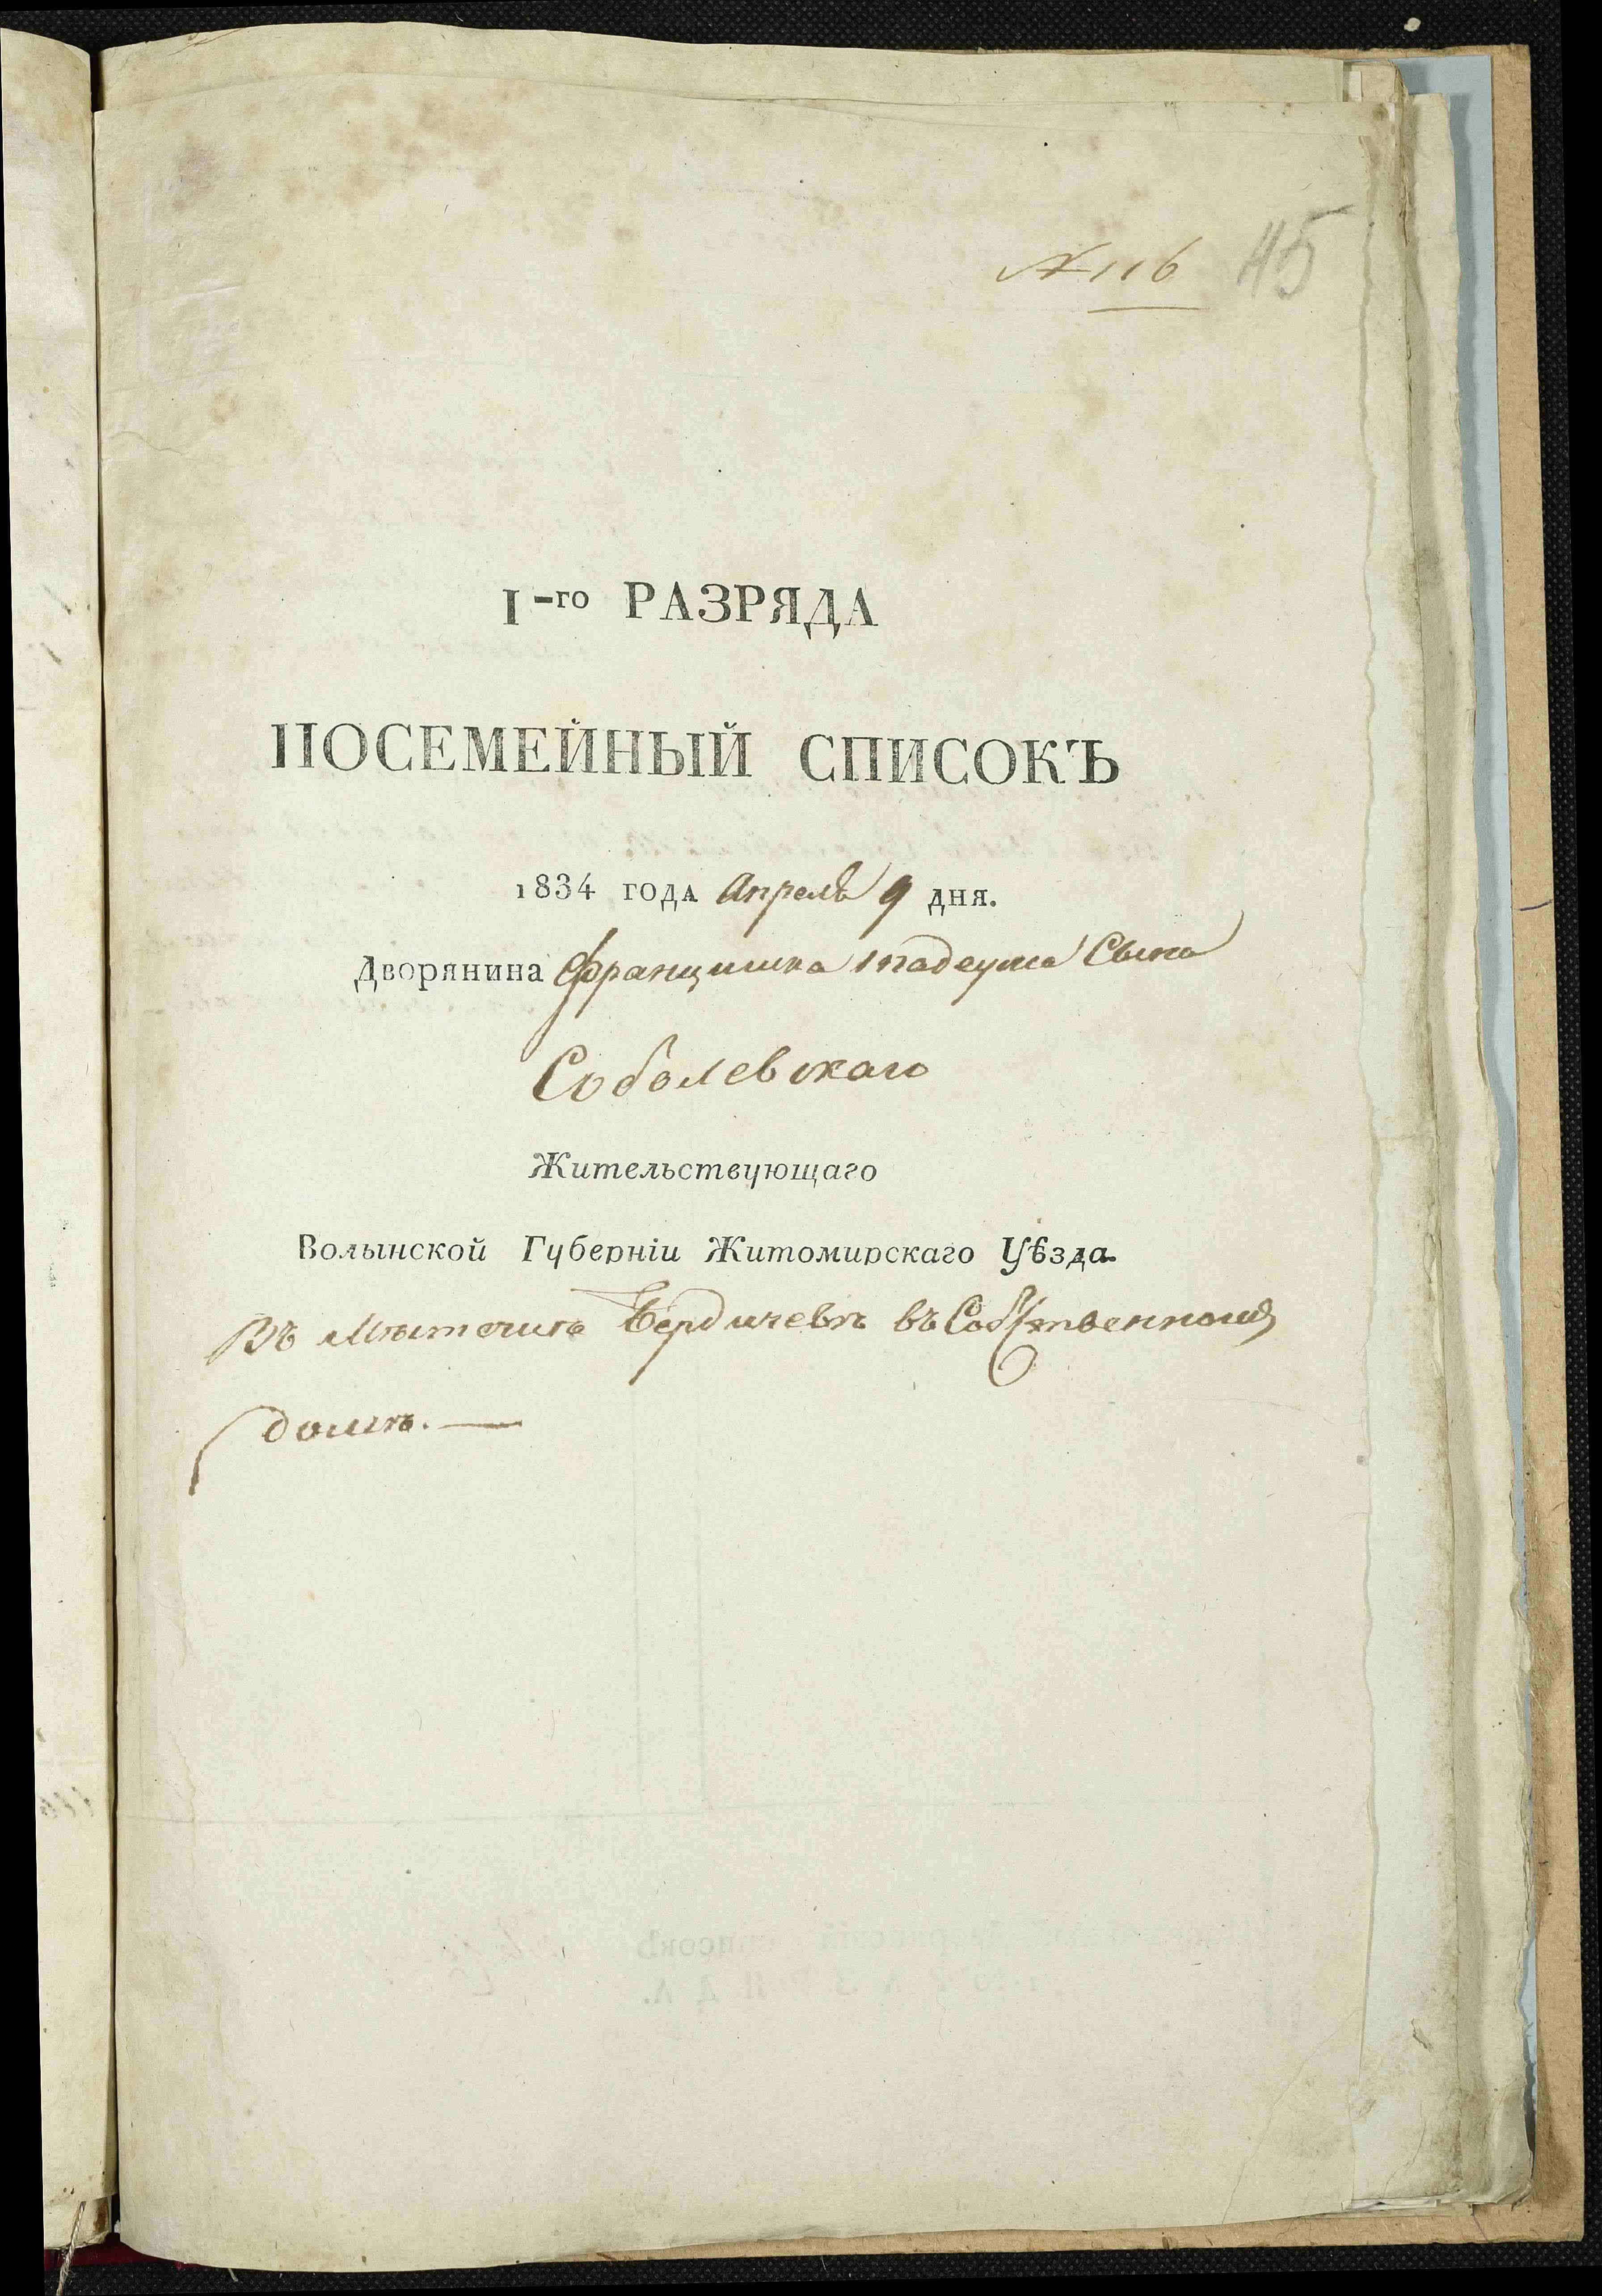 № 116 45
I-го РАЗРЯДА
ПОСЕМЕЙНЫЙ СПИСОКЪ
1834 года Апреля 9 дня.
Дворянина Францишка Тадеуша Сына
Соболевскаго
Жительствующаго
Волынской Губерніи Житомирскаго Уѣзда
Въ Мѣстечке Бердичевѣ въ Собственномъ
домѣ. —